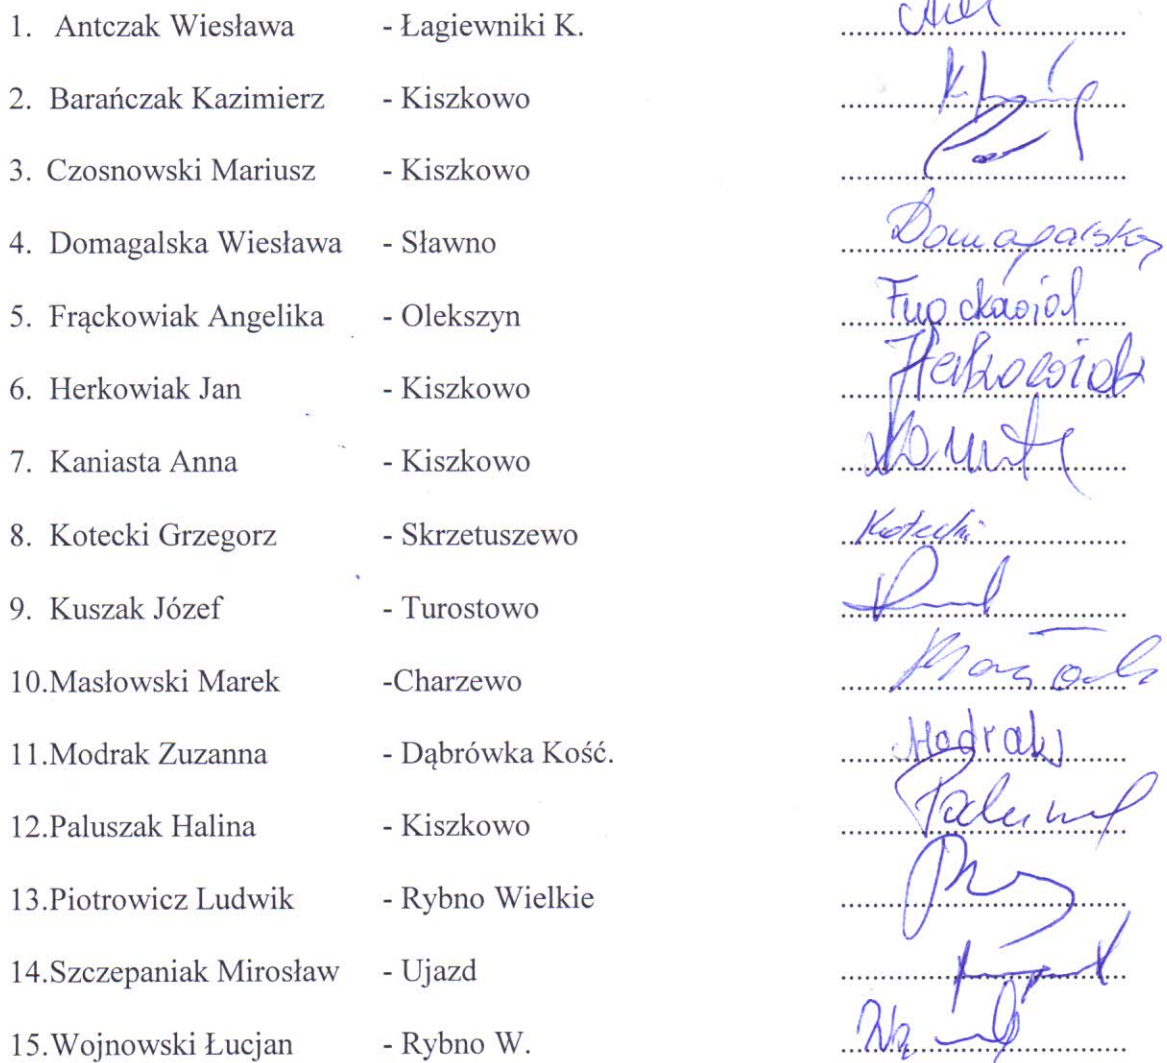 1. Antczak Wiesława - Łagiewniki K. ....................................
2. Barańczak Kazimierz - Kiszkowo ....................................
3. Czosnowski Mariusz - Kiszkowo ....................................
4. Domagalska Wiesława - Sławno Domagalska
5. Frąckowiak Angelika - Olekszyn ....................................
6. Herkowiak Jan - Kiszkowo Herkowiak
7. Kaniasta Anna - Kiszkowo ....................................
8. Kotecki Grzegorz - Skrzetuszewo Kotecki
9. Kuszak Józef - Turostowo ....................................
10.Masłowski Marek -Charzewo ....................................
11.Modrak Zuzanna - Dąbrówka Kość. Modrak
12.Paluszak Halina - Kiszkowo ....................................
13.Piotrowicz Ludwik - Rybno Wielkie ....................................
14.Szczepaniak Mirosław - Ujazd ....................................
15.Wojnowski Łucjan - Rybno W. ....................................